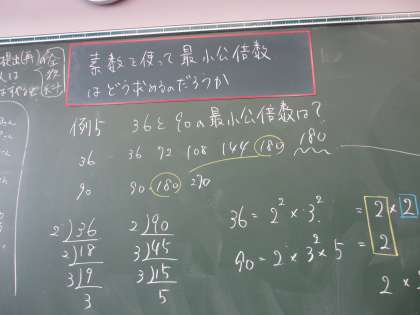 素数を使って最小公倍数
はどう求めるのだろうか
例5 36と90の最小公倍数は?
36 36 72 108 144 180 180
90 90 180 270
2)36 2)90
2)18 3)45
3)9 3)15
3 5
36 = 2² × 3² = 2 × 2
90 = 2 × 3² × 5 = 2
2 ×